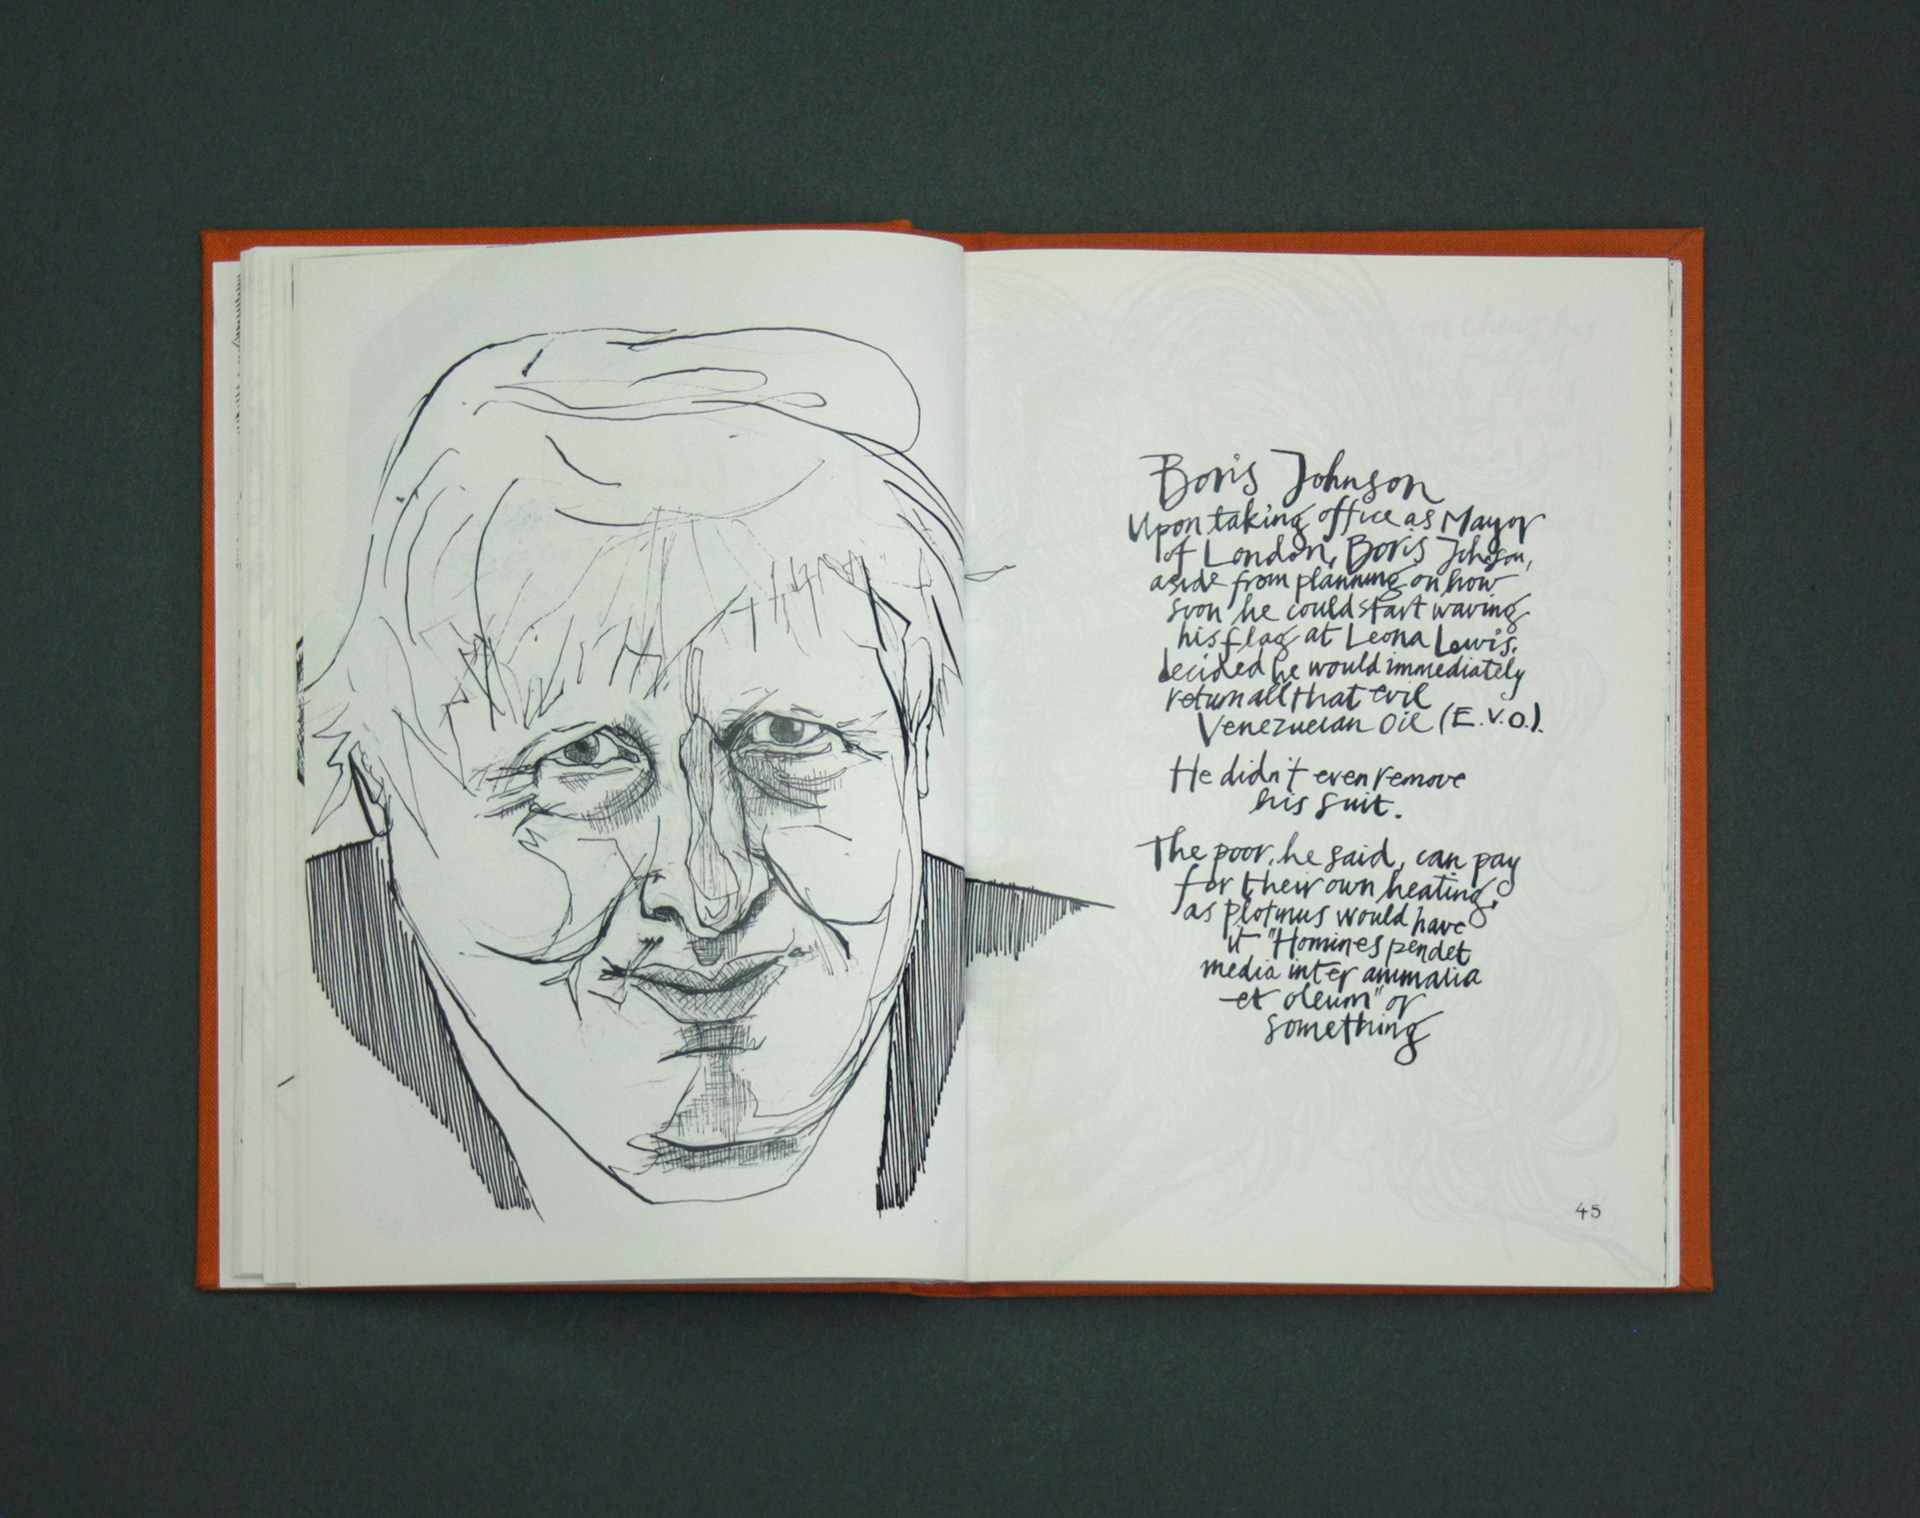 Boris Johnson
Upon taking office as Mayor
of London, Boris Johnson,
aside from planning on how
soon he could start waving
his flag at Leona Lewis,
decided he would immediately
return all that evil
Venezuelan Oil (E.V.O.).
He didn't even remove
his suit.
The poor, he said, can pay
for their own heating;
as plotinus would have
it "Homines pendet
media inter animalia
et oleum" or
something
45